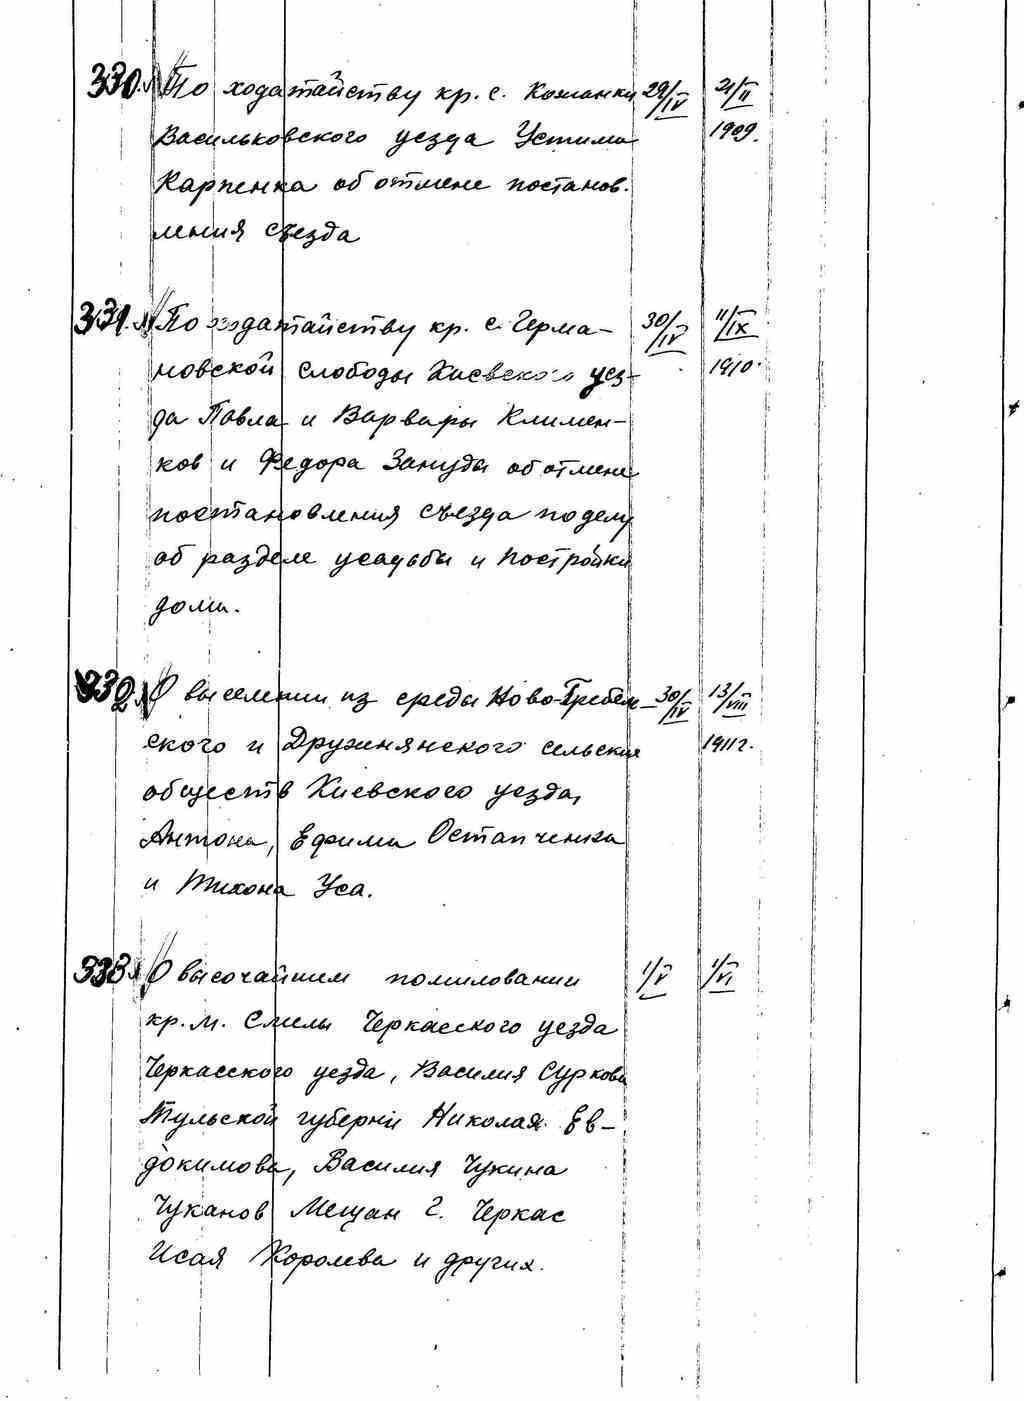 330. По ходатайству кр. с. Кожанки 29/IV 21/II
Васильковского уезда Устима 1909.
Карпенка об отмене постанов.
ления съезда
331. По ходатайству кр. с. Герма- 30/IV 11/IX
новской слободы Киевского уез- 1910.
да Павла и Варвары Климен-
ков и Федора Зануды об отмене
постановления съезда по делу
об разделе усадьбы и постройки
дома.
332. О выселении из среды Ново-Гребен- 30/IV 13/VIII
ского и Дружнянского сельских 1911 г.
обществ Киевского уезда,
Антона, Ефима Остапченка
и Тихона Уса.
333. О высочайшем помиловании 1/V 1/VI
кр. м. Смелы Черкасского уезда
Черкасского уезда, Василия Суркова
Тульской губерни Николая Ев-
докимова, Василия Чукина
Чуканов Мещан г. Черкас
Исая Королева и других.